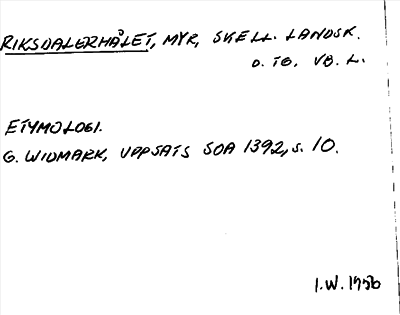 RIKSDALERHÅLET, MYR, SKELL. LANDSK.
O. TG. VB. L.
ETYMOLOGI.
G. WIDMARK, UPPSATS SOA 1392, s. 10.
I.W. 1956